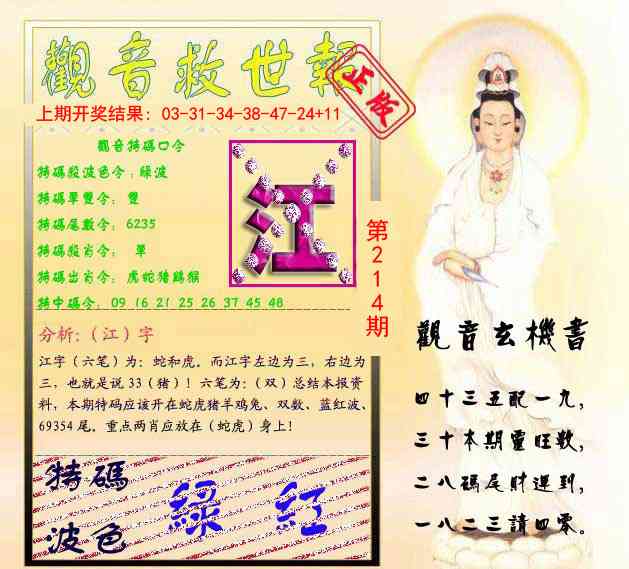 觀音救世報
正版
上期开奖结果：03-31-34-38-47-24+11
觀音特碼口令
特碼殺波色令：綠波
特碼單雙令： 雙
特碼尾數令： 6235
特碼殺肖令： 單
特碼出肖令： 虎蛇猪鷄猴
特中碼令： 09 16 21 25 26 37 45 48
江
第214期
分析：（江）字
江字（六笔）为：蛇和虎。而江字左边为三，右边为
三，也就是说 33（猪）！六笔为：（双）总结本报资
料，本期特码应该开在蛇虎猪羊鸡兔、双数、蓝红波、
69354 尾。重点两肖应放在（蛇虎）身上！
特碼
波色
綠 紅
觀音玄機書
四十三五配一九，
三十本期靈旺数，
二八碼尾財運到，
一八二三請四零。